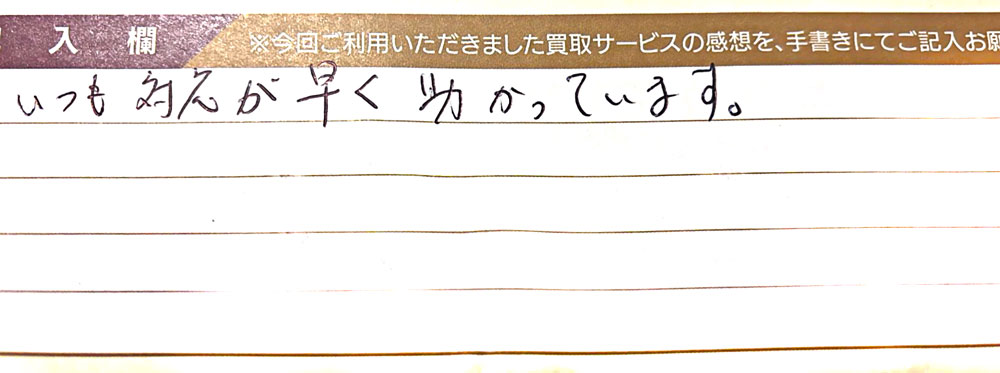 入欄 ※今回ご利用いただきました買取サービスの感想を、手書きにてご記入お願
いつも対応が早く助かっています。